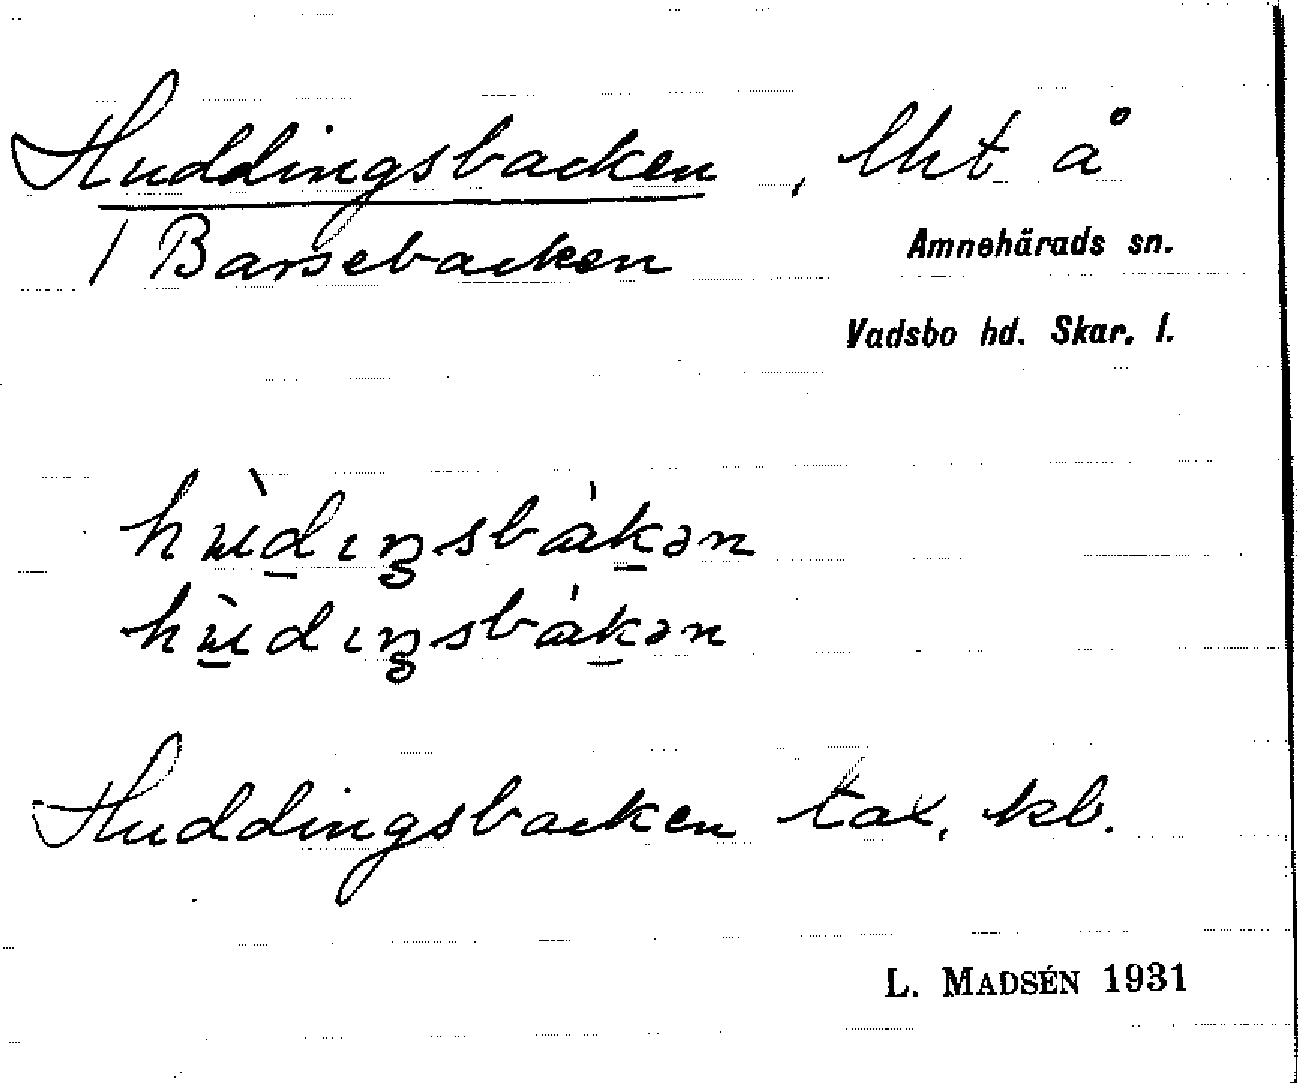 Huddingsbacken, lht å
/ Barsebacken
Amnehärads sn.
Vadsbo hd. Skar. l.
hùd̲ıŋsbák̲ən
hù̲dıŋsbák̲ən
Huddingsbacken tax, kb.
L. MADSÉN 1931